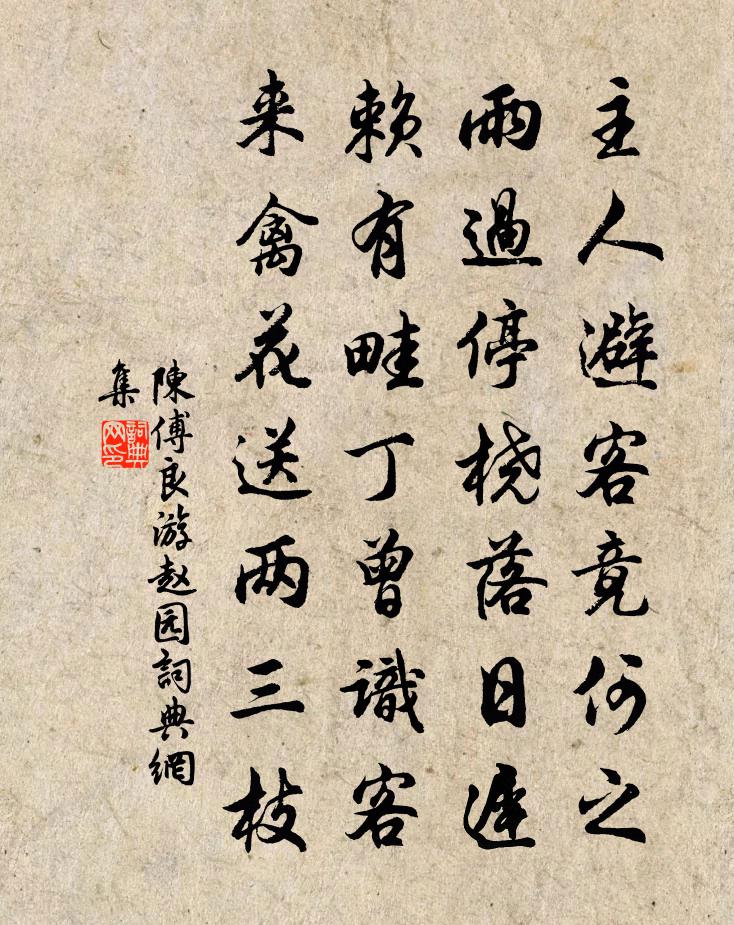 主人避客竟何之
雨過停桡落日遲
赖有畦丁曾識客
来禽花送两三枝
陳傅良游赵园詞典網
集
詞典
网印